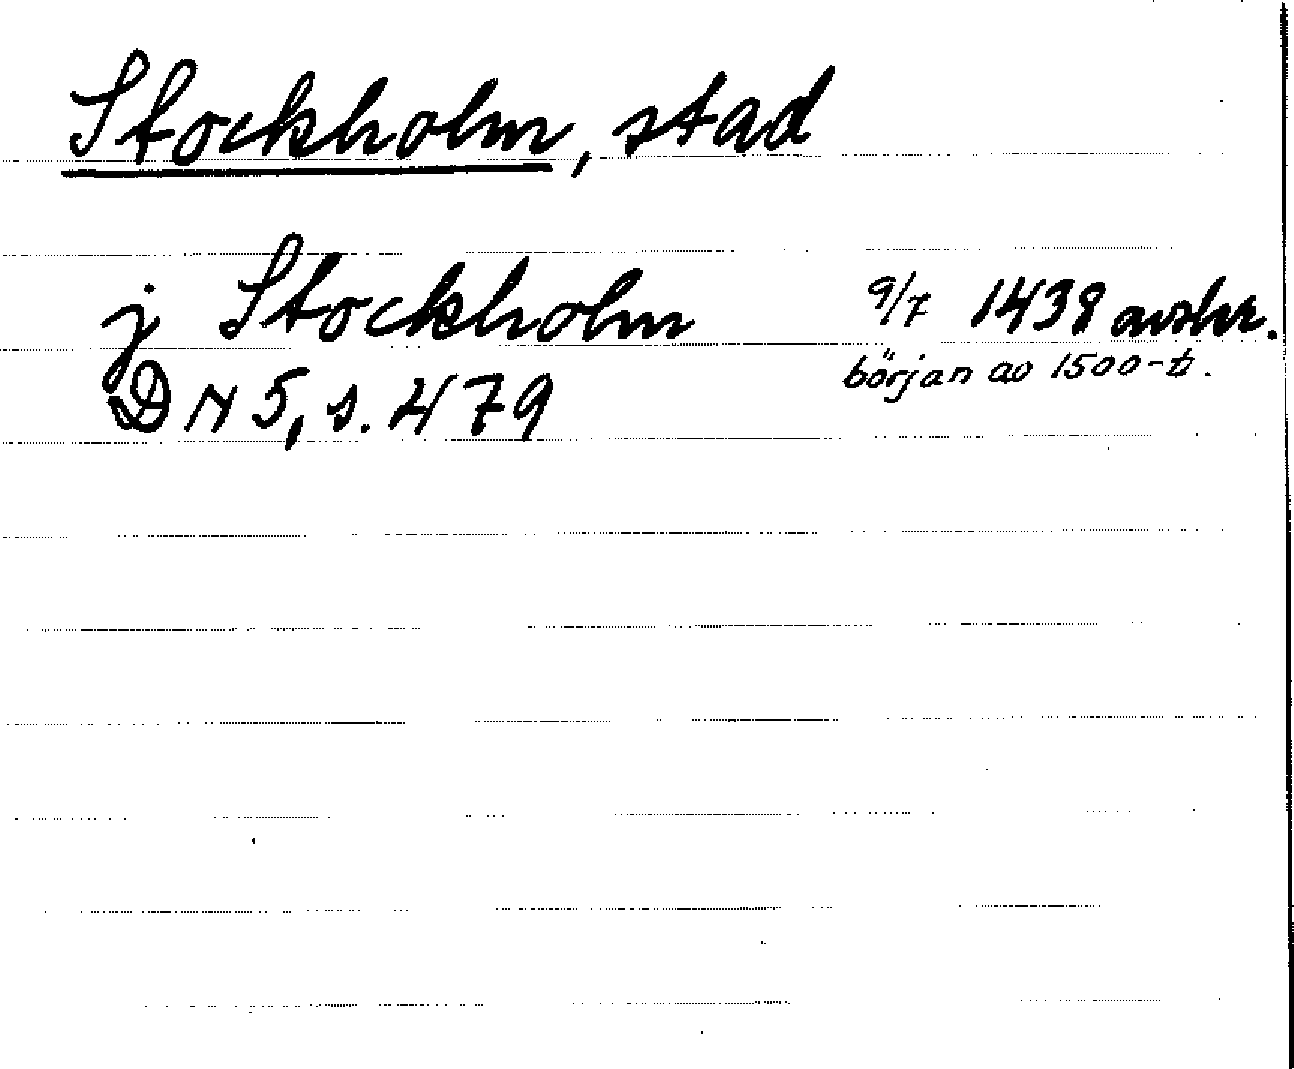 Stockholm, stad
j Stockholm 9/7 1438 avskr.
början av 1500-t.
DN 5, s. 479